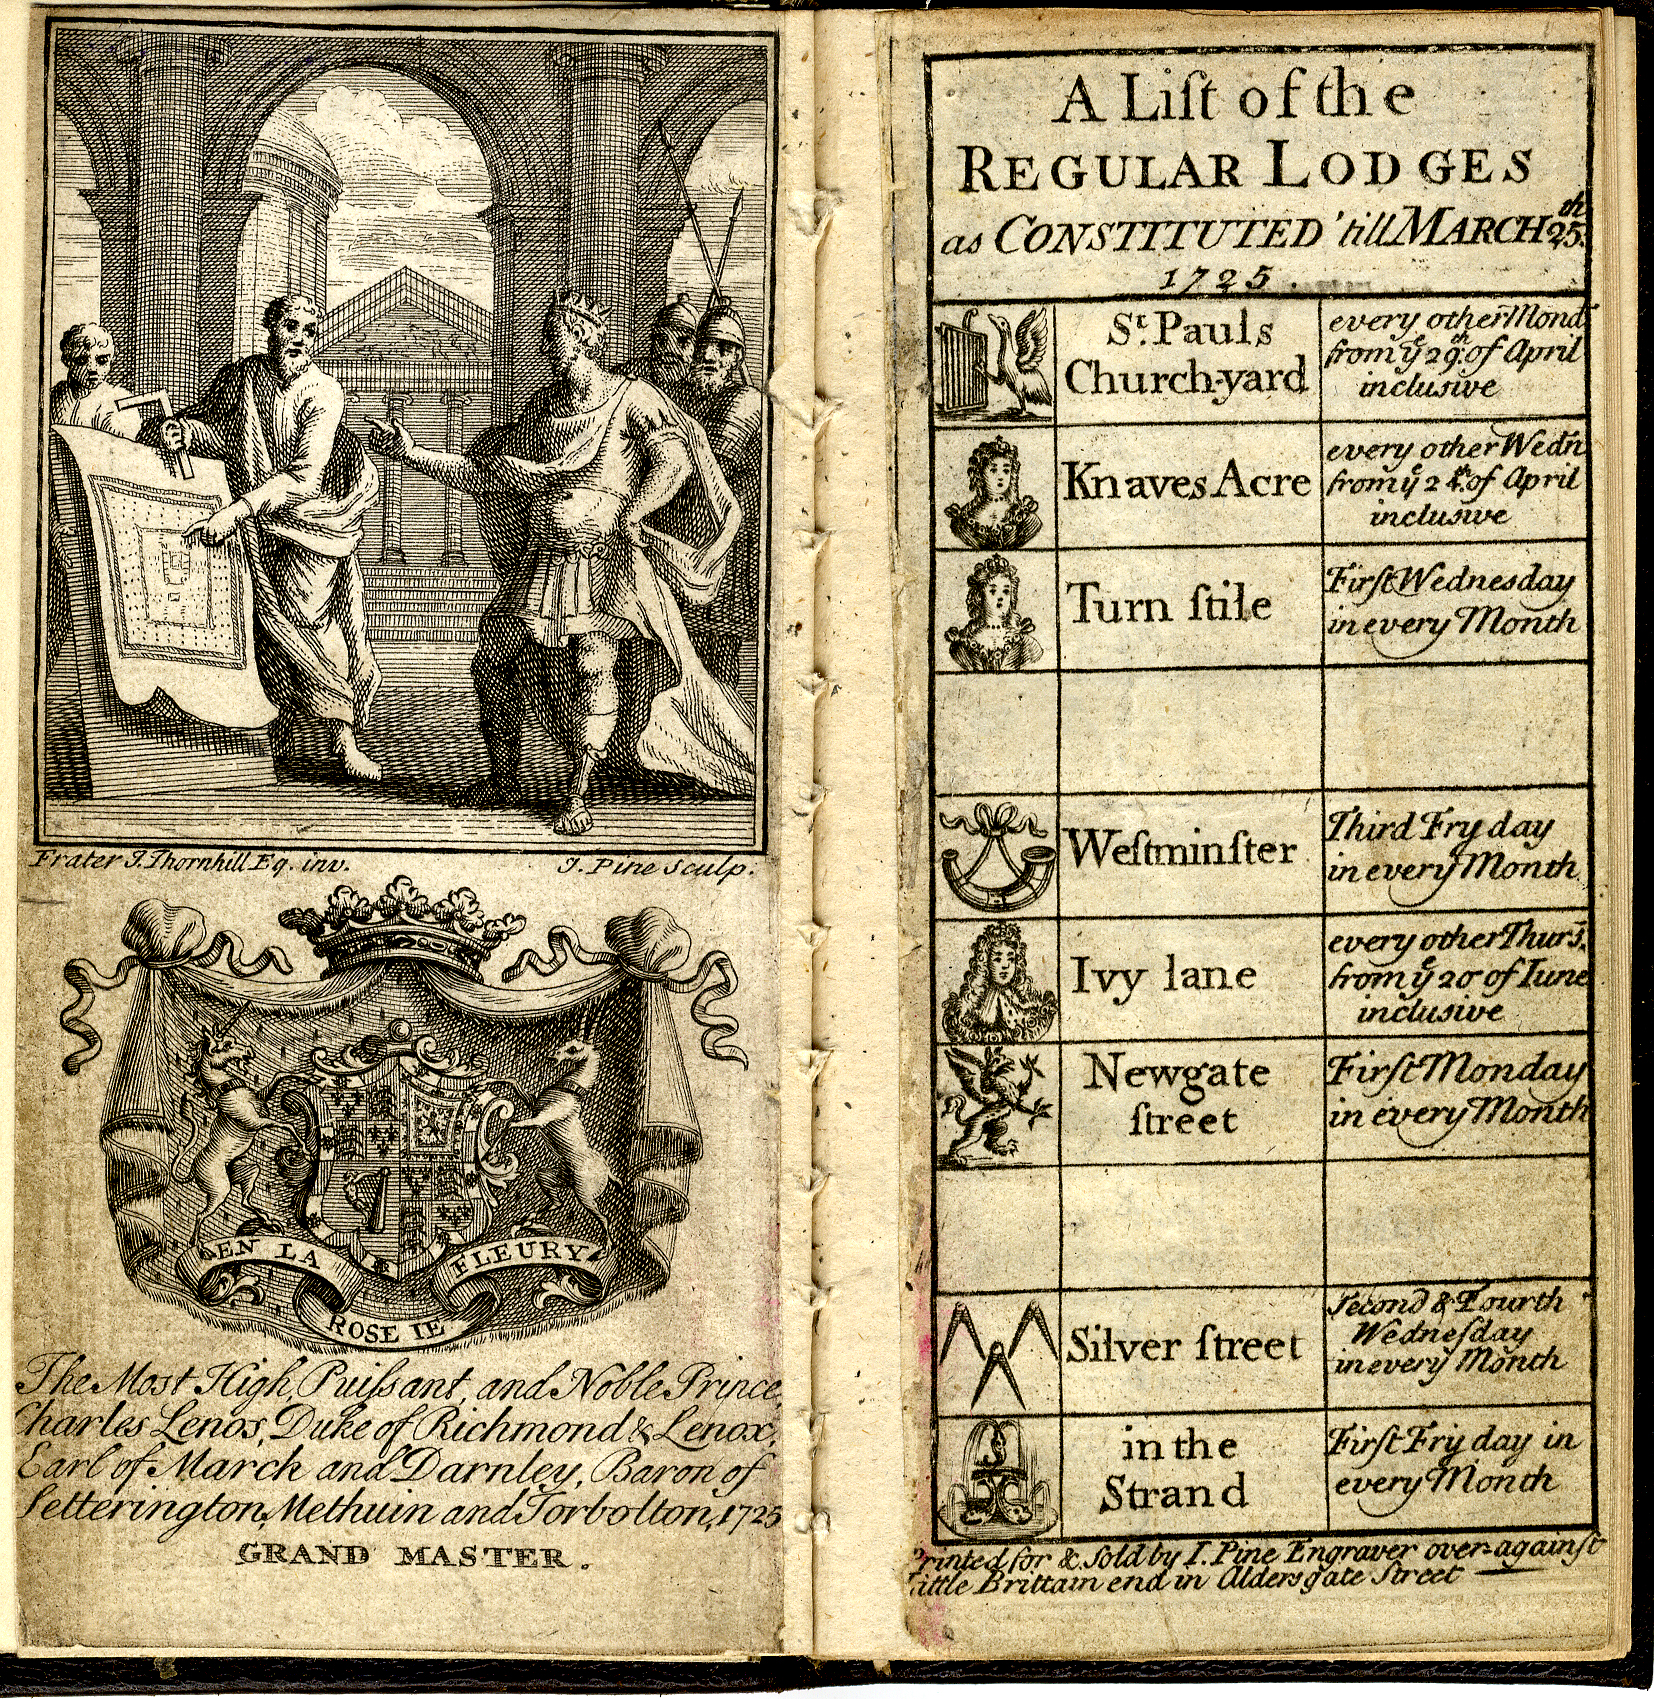 Frater J. Thornhill Eq. inv.
J. Pine Sculp.
EN LA
ROSE IE
FLEURY
The Most High, Puiſsant, and Noble Prince,
Charles Lenos, Duke of Richmond & Lenox,
Earl of March and Darnley, Baron of
Setterington, Methuin and Torbolton, 1725
GRAND MASTER.
A Liſt of the
REGULAR LODGES
as CONSTITUTED 'till MARCH 25th.
1725.
St. Pauls
Church-yard
every other Mond
from ye 29th. of April
inclusive
Knaves Acre
every other Wedn
from ye 24th. of April
inclusive
Turn ſtile
Firſt Wednesday
in every Month
Weſtminſter
Third Fryday
in every Month
Ivy lane
every other Thurs.
from ye 20 of Iune
inclusive
Newgate
ſtreet
Firſt Monday
in every Month
Silver ſtreet
Second & Fourth
Wedneſday
in every Month
in the
Strand
Firſt Fryday in
every Month
Printed for & Sold by I. Pine Engraver over-againſt
little Brittain end in Aldersgate Street